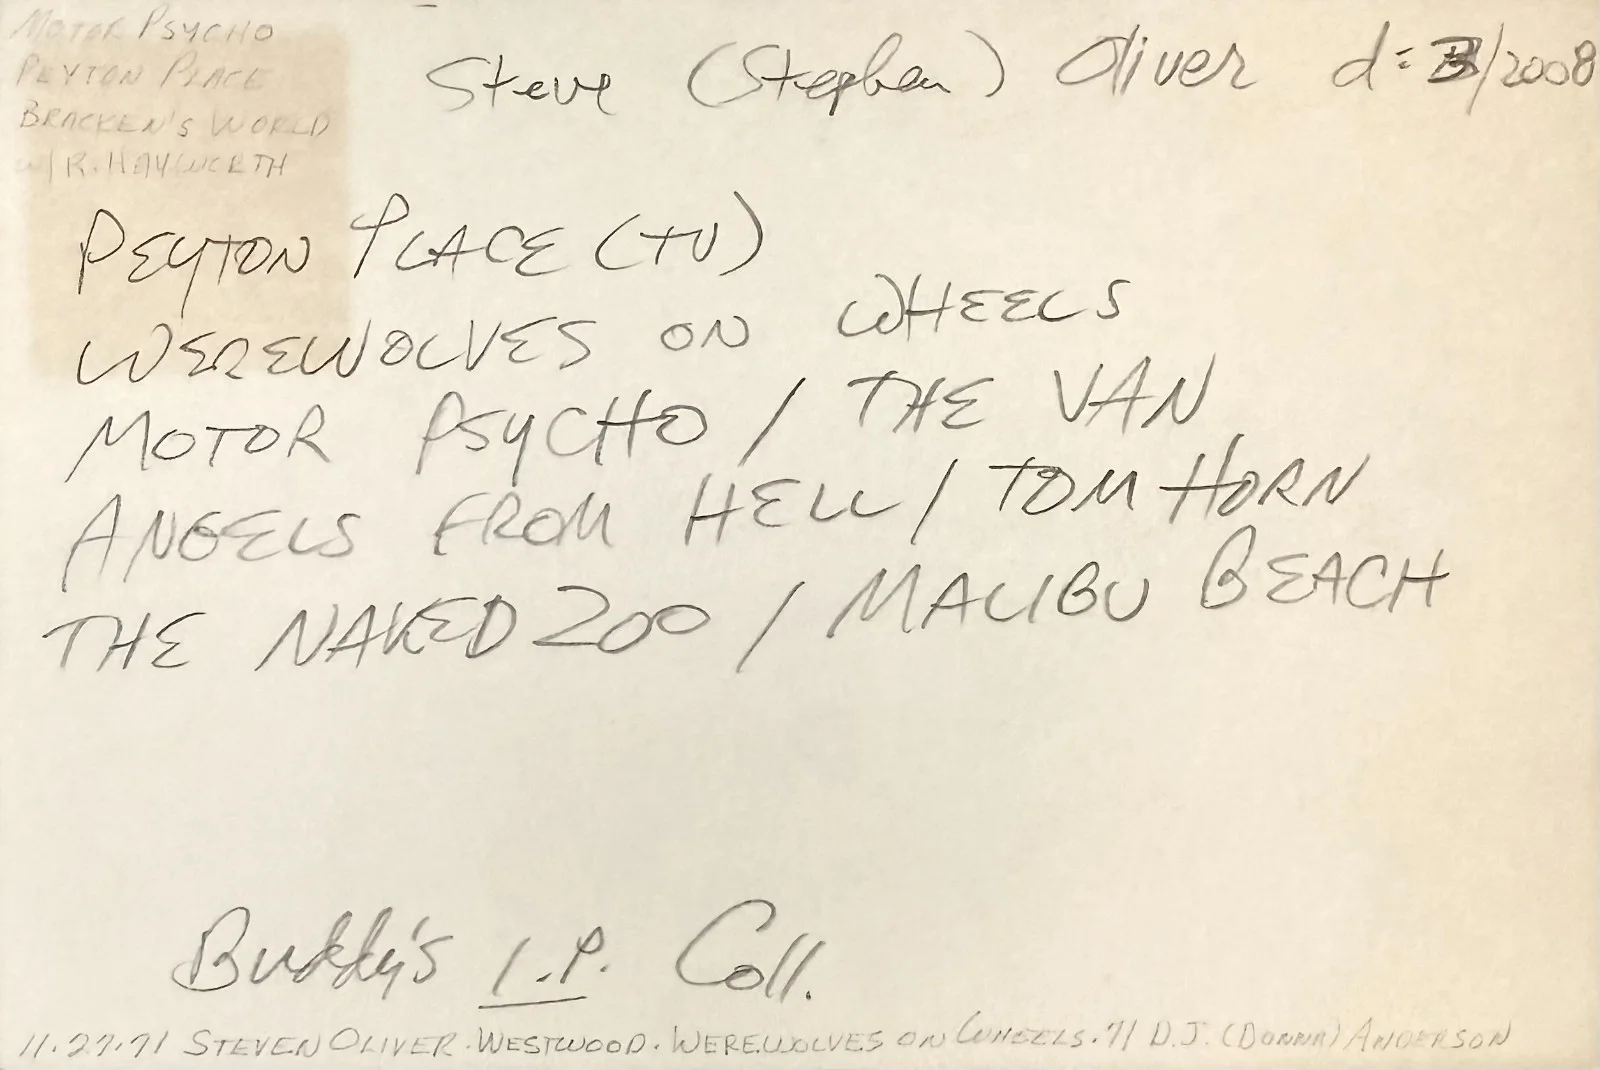 MOTOR PSYCHO
PEYTON PLACE
BRACKEN'S WORLD
w/ R. HAYWORTH
Steve (Stephen) Oliver d: /2008
PEYTON PLACE (TV)
WEREWOLVES ON WHEELS
MOTOR PSYCHO / THE VAN
ANGELS FROM HELL / TOM HORN
THE NAKED ZOO / MALIBU BEACH
Buddy's I.P. Coll.
11.27.71 STEVEN OLIVER. WESTWOOD. WEREWOLVES ON WHEELS. 71 D.J. (DONNA) ANDERSON